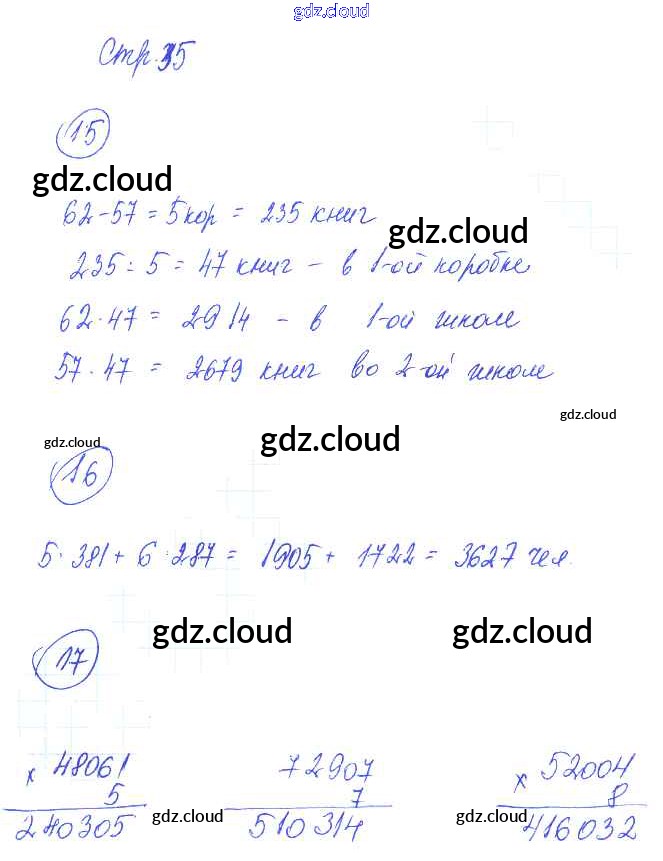 gdz.cloud
Стр. 35
15
gdz.cloud
62-57 = 5 кор = 235 книг
gdz.cloud
235 : 5 = 47 книг - в 1-ой коробке
62 · 47 = 2914 - в 1-ой школе
57 · 47 = 2679 книг во 2-ой школе
gdz.cloud
gdz.cloud gdz.cloud
16
5 · 381 + 6 · 287 = 1905 + 1722 = 3627 чел.
gdz.cloud gdz.cloud
17
× 48061 72907 × 52004
5 7 8
240305 gdz.cloud 510314 gdz.cloud 416032